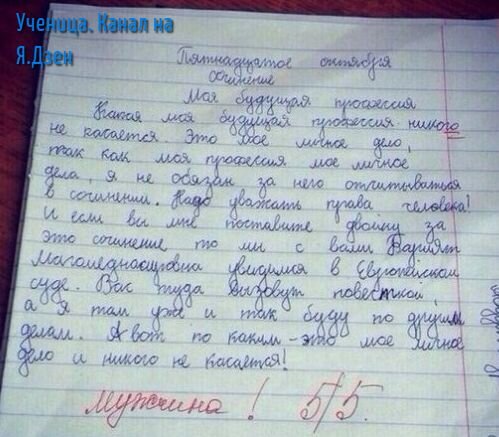 Ученица. Канал на
Я.Дзен
Пятнадцатое октября
Сочинение
Моя будущая профессия
Какая моя будущая профессия никого
не касается. Это мое личное дело,
так как моя профессия мое личное
дела, я не обязан за него отчитываться
в сочинении. Надо уважать права человека!
И если вы мне поставите двойку за
это сочинение то мы с вами Барият
Магомеднасировна увидимся в Европейском
суде. Вас туда вызовут повесткой,
а я там уже и так буду по другим
делам. А вот по каким - это мое личное
дело и никого не касается!
мужчина! 5/5.